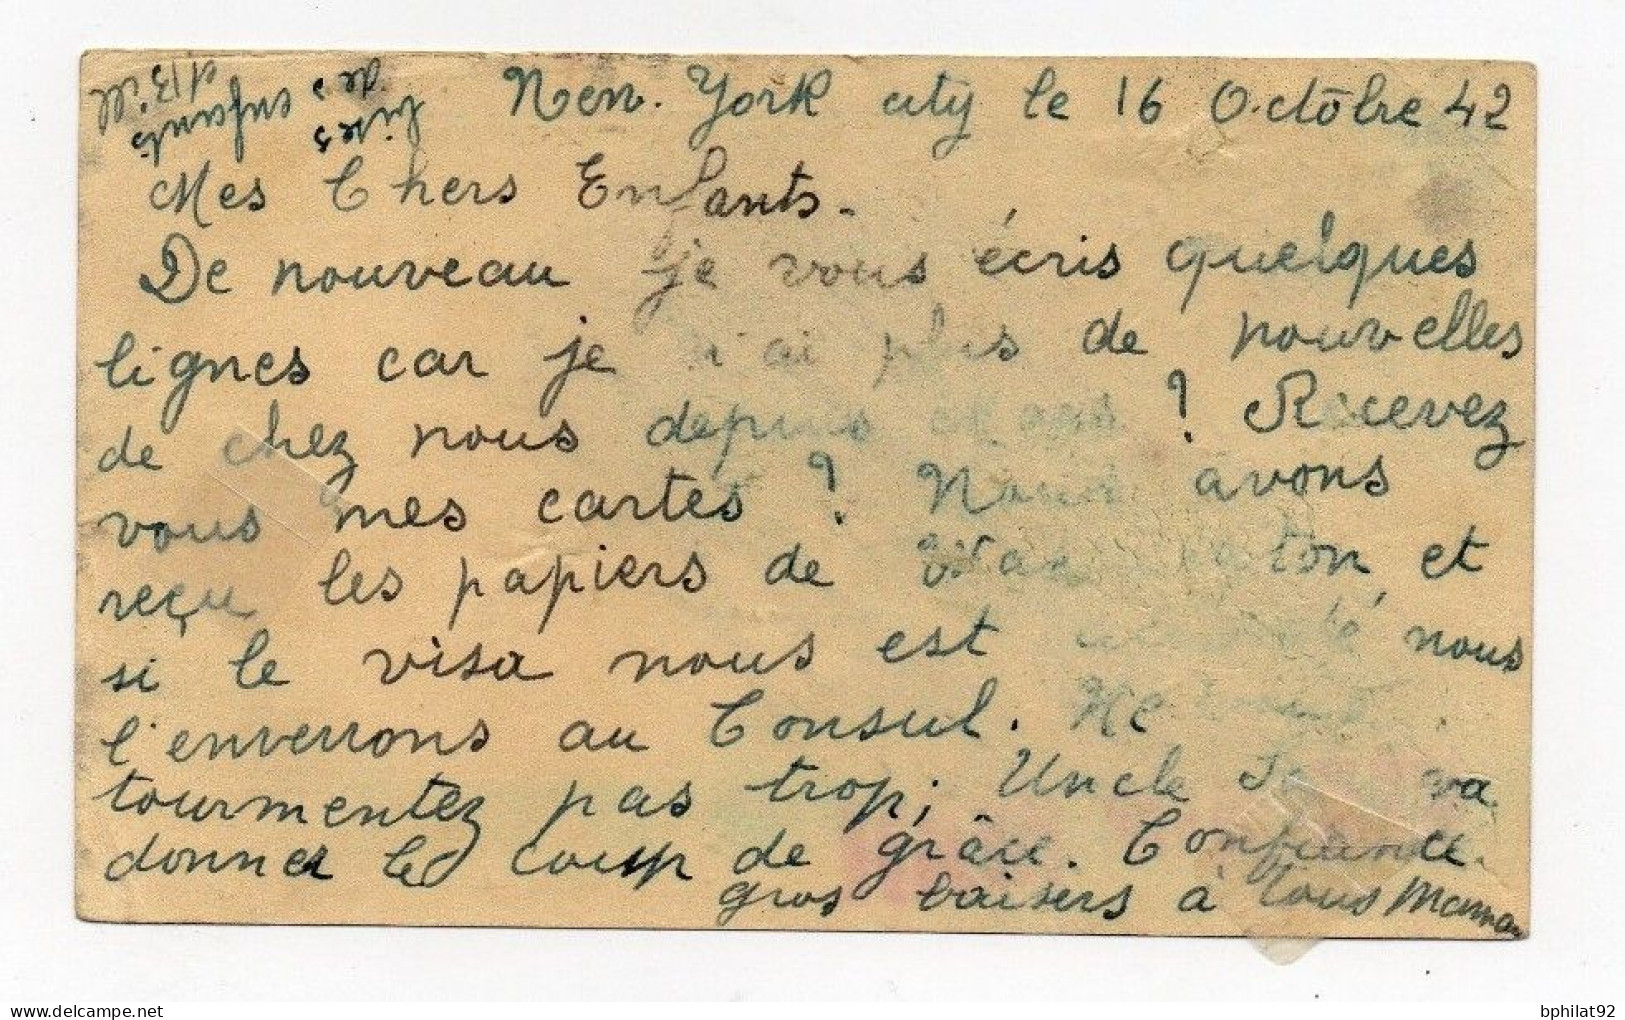 New. York city le 16 Octobre 42
Mes Chers Enfants.
De nouveau je vous écris quelques
lignes car je n'ai plus de nouvelles
de chez nous depuis ? Recevez
vous mes cartes ? Nous avons
reçu les papiers de et
si le visa nous est nous
l'enverrons au Consul. Ne
tourmentez pas trop; Uncle va
donner le coup de grâce. Confiance.
gros baisers à tous Maman
bises
des
enfants
d Bill
bphilat92